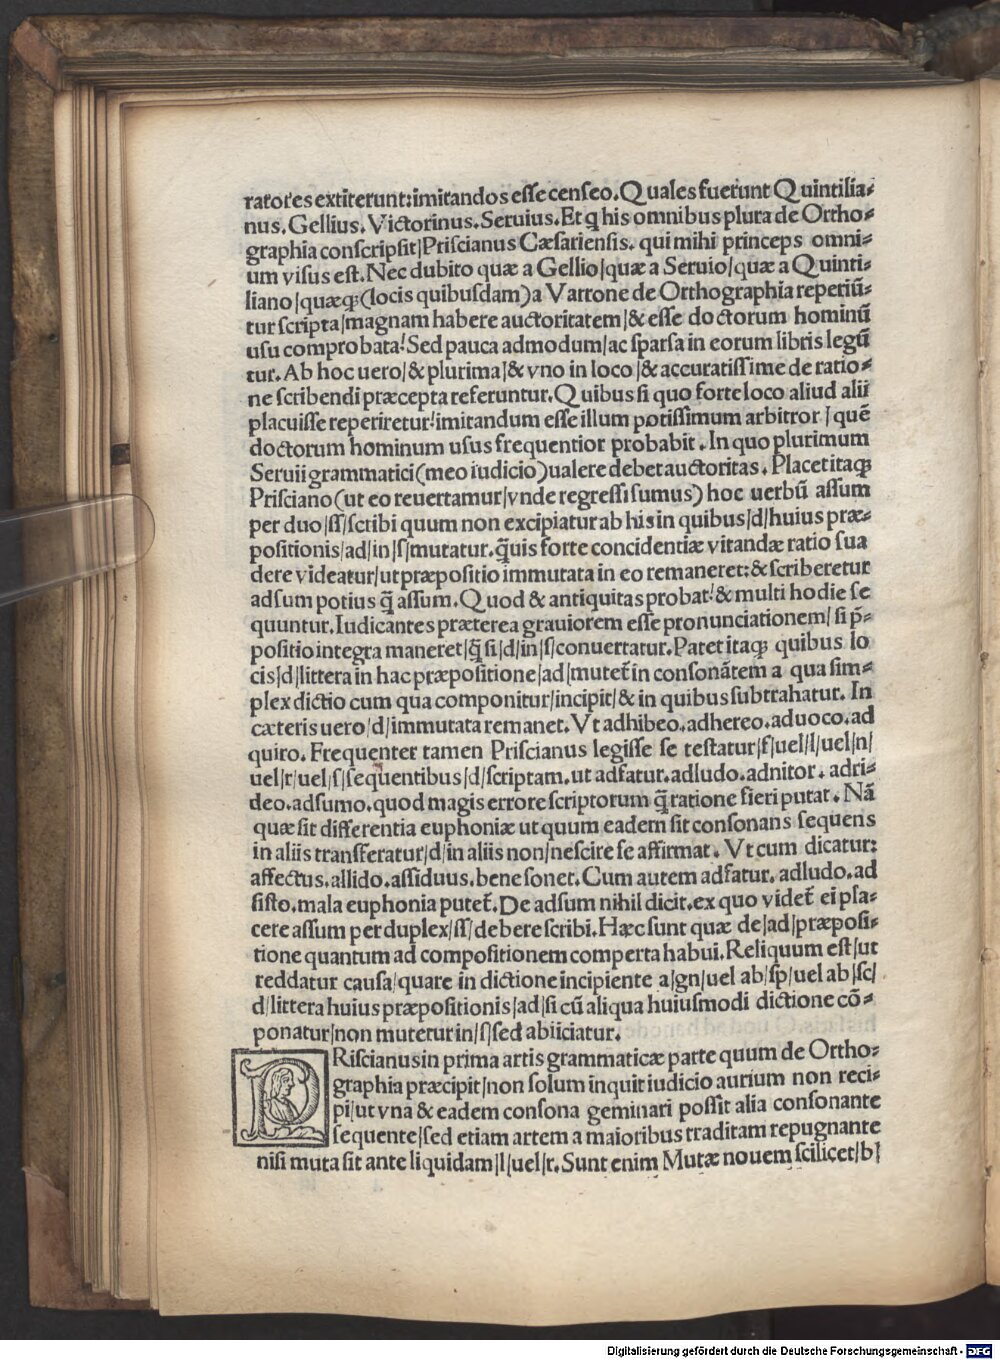 ratores extiterunt:imitandos esse censeo.Quales fuerunt Quintilia⸗
nus.Gellius.Victorinus.Seruius.Et ꝗ his omnibus plura de Ortho⸗
graphia conscripsit|Priscianus Cæsariensis.qui mihi princeps omni⸗
um visus est.Nec dubito quæ a Gellio|quæ a Seruio|quæ a Quinti⸗
liano|quæꝗ;(locis quibusdam)a Varrone de Orthographia reperiũ⸗
tur scripta|magnam habere auctoritatem|& esse doctorum hominũ
usu comprobata!Sed pauca admodum|ac sparsa in eorum libris legũ
tur.Ab hoc uero|& plurima|& vno in loco|& accuratissime de ratio⸗
ne scribendi præcepta referuntur.Quibus si quo forte loco aliud alii
placuisse reperiretur!imitandum esse illum potissimum arbitror|quẽ
doctorum hominum usus frequentior probabit.In quo plurimum
Seruii grammatici(meo iudicio)ualere debet auctoritas.Placet itaꝗ;
Prisciano(ut eo reuertamur|vnde regressi sumus)hoc uerbũ assum
per duo|ss|scribi quum non excipiatur ab his in quibus|d|huius præ⸗
positionis|ad|in|s|mutatur.ꝗ̃uis forte concidentiæ vitandæ ratio sua
dere videatur|ut præpositio immutata in eo remaneret:& scriberetur
adsum potius ꝗ̃ assum.Quod & antiquitas probat!& multi hodie se
quuntur.Iudicantes præterea grauiorem esse pronunciationem|si p̃⸗
positio integra maneret|ꝗ̃ si|d|in|s|conuertatur.Patet itaꝗ; quibus lo
cis|d|littera in hac præpositione|ad|mutet̃ in consonãtem a qua sim⸗
plex dictio cum qua componitur|incipit|& in quibus subtrahatur. In
cæteris uero|d|immutata remanet.Vt adhibeo.adhereo.aduoco.ad
quiro.Frequenter tamen Priscianus legisse se testatur|f|uel|l|uel|n|
uel|r|uel|s|sequentibus|d|scriptam.ut adfatur.adludo.adnitor.adri⸗
deo.adsumo.quod magis errore scriptorum ꝗ̃ ratione fieri putat.Nã
quæ sit differentia euphoniæ ut quum eadem sit consonans sequens
in aliis transferatur|d|in aliis non|nescire se affirmat.Vt cum dicatur:
affectus.allido.assiduus.bene sonet.Cum autem adfatur.adludo.ad
sisto.mala euphonia putet̃.De adsum nihil dicit.ex quo videt̃ ei pla⸗
cere assum per duplex|ss|debere scribi.Hæc sunt quæ de|ad|præposi⸗
tione quantum ad compositionem comperta habui.Reliquum est|ut
reddatur causa|quare in dictione incipiente a|gn|uel ab|sp|uel ab|sc|
d|littera huius præpositionis|ad|si cũ aliqua huiusmodi dictione cõ⸗
ponatur|non mutetur in|s|sed abiiciatur.
PRiscianus in prima artis grammaticæ parte quum de Ortho⸗
graphia præcipit|non solum inquit iudicio aurium non reci⸗
pi|ut vna & eadem consona geminari possit alia consonante
sequente|sed etiam artem a maioribus traditam repugnante
nisi muta sit ante liquidam|l|uel|r.Sunt enim Mutæ nouem scilicet|b|
Digitalisierung gefördert durch die Deutsche Forschungsgemeinschaft - DFG